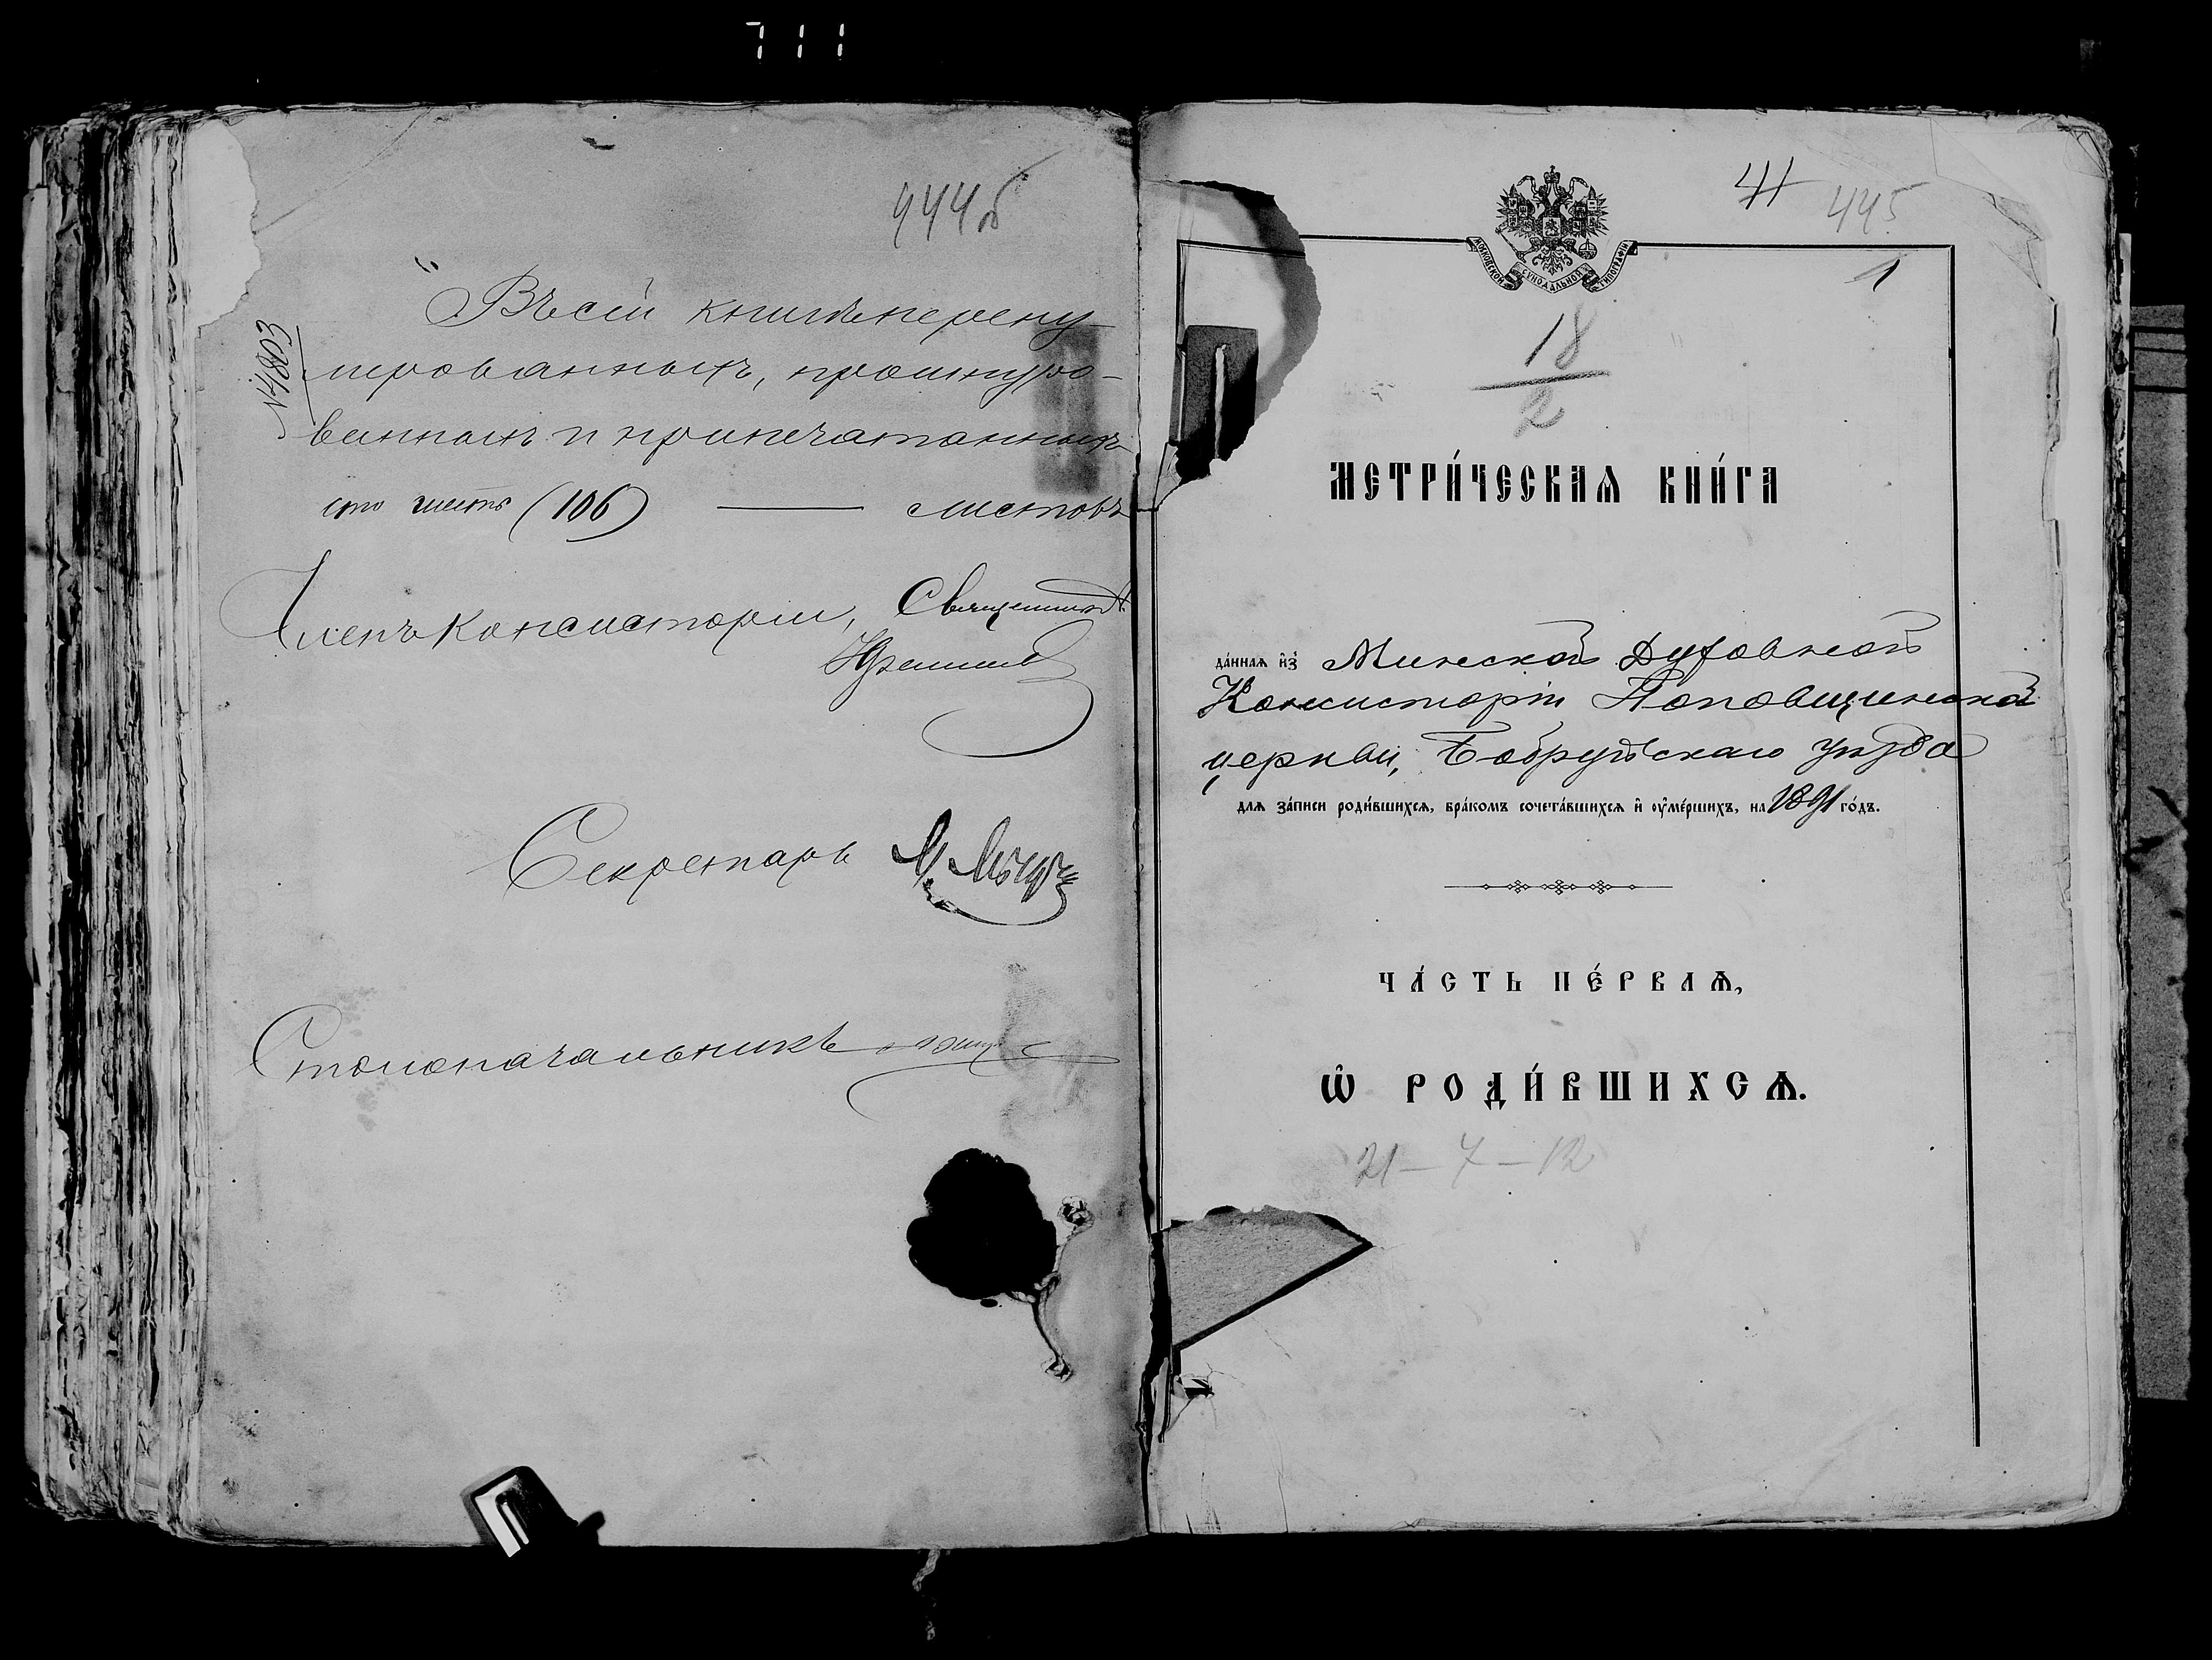 711
444 об
Въ сей книгѣ перену-
мерованныхъ, прошнуро-
ванныхъ и припечатанныхъ
сто шесть (106) — листовъ
№ 4803
Членъ Консисторіи, Священникъ
Секретарь
Столоначальникъ
41 445
1
МОСКОВСКОЙ СѴНОДАЛЬНОЙ ТИПОГРАФІИ
18
2
МЕТРИ́ЧЕСКАѦ КНИ́ГА
да́ннаѧ и҆з̾ Минской Духовной
Консисторіи Поповщинской
церкви, Бобруйскаго уѣзда
длѧ за́писи роди́вшихсѧ, бра́комъ сочета́вшихсѧ и҆ ᲂу҆ме́ршихъ, на 1891 го́дъ.
ЧА́СТЬ ПЕ́РВАѦ,
Ѡ҆ РОДИ́ВШИХСѦ.
21 — 7 — 12